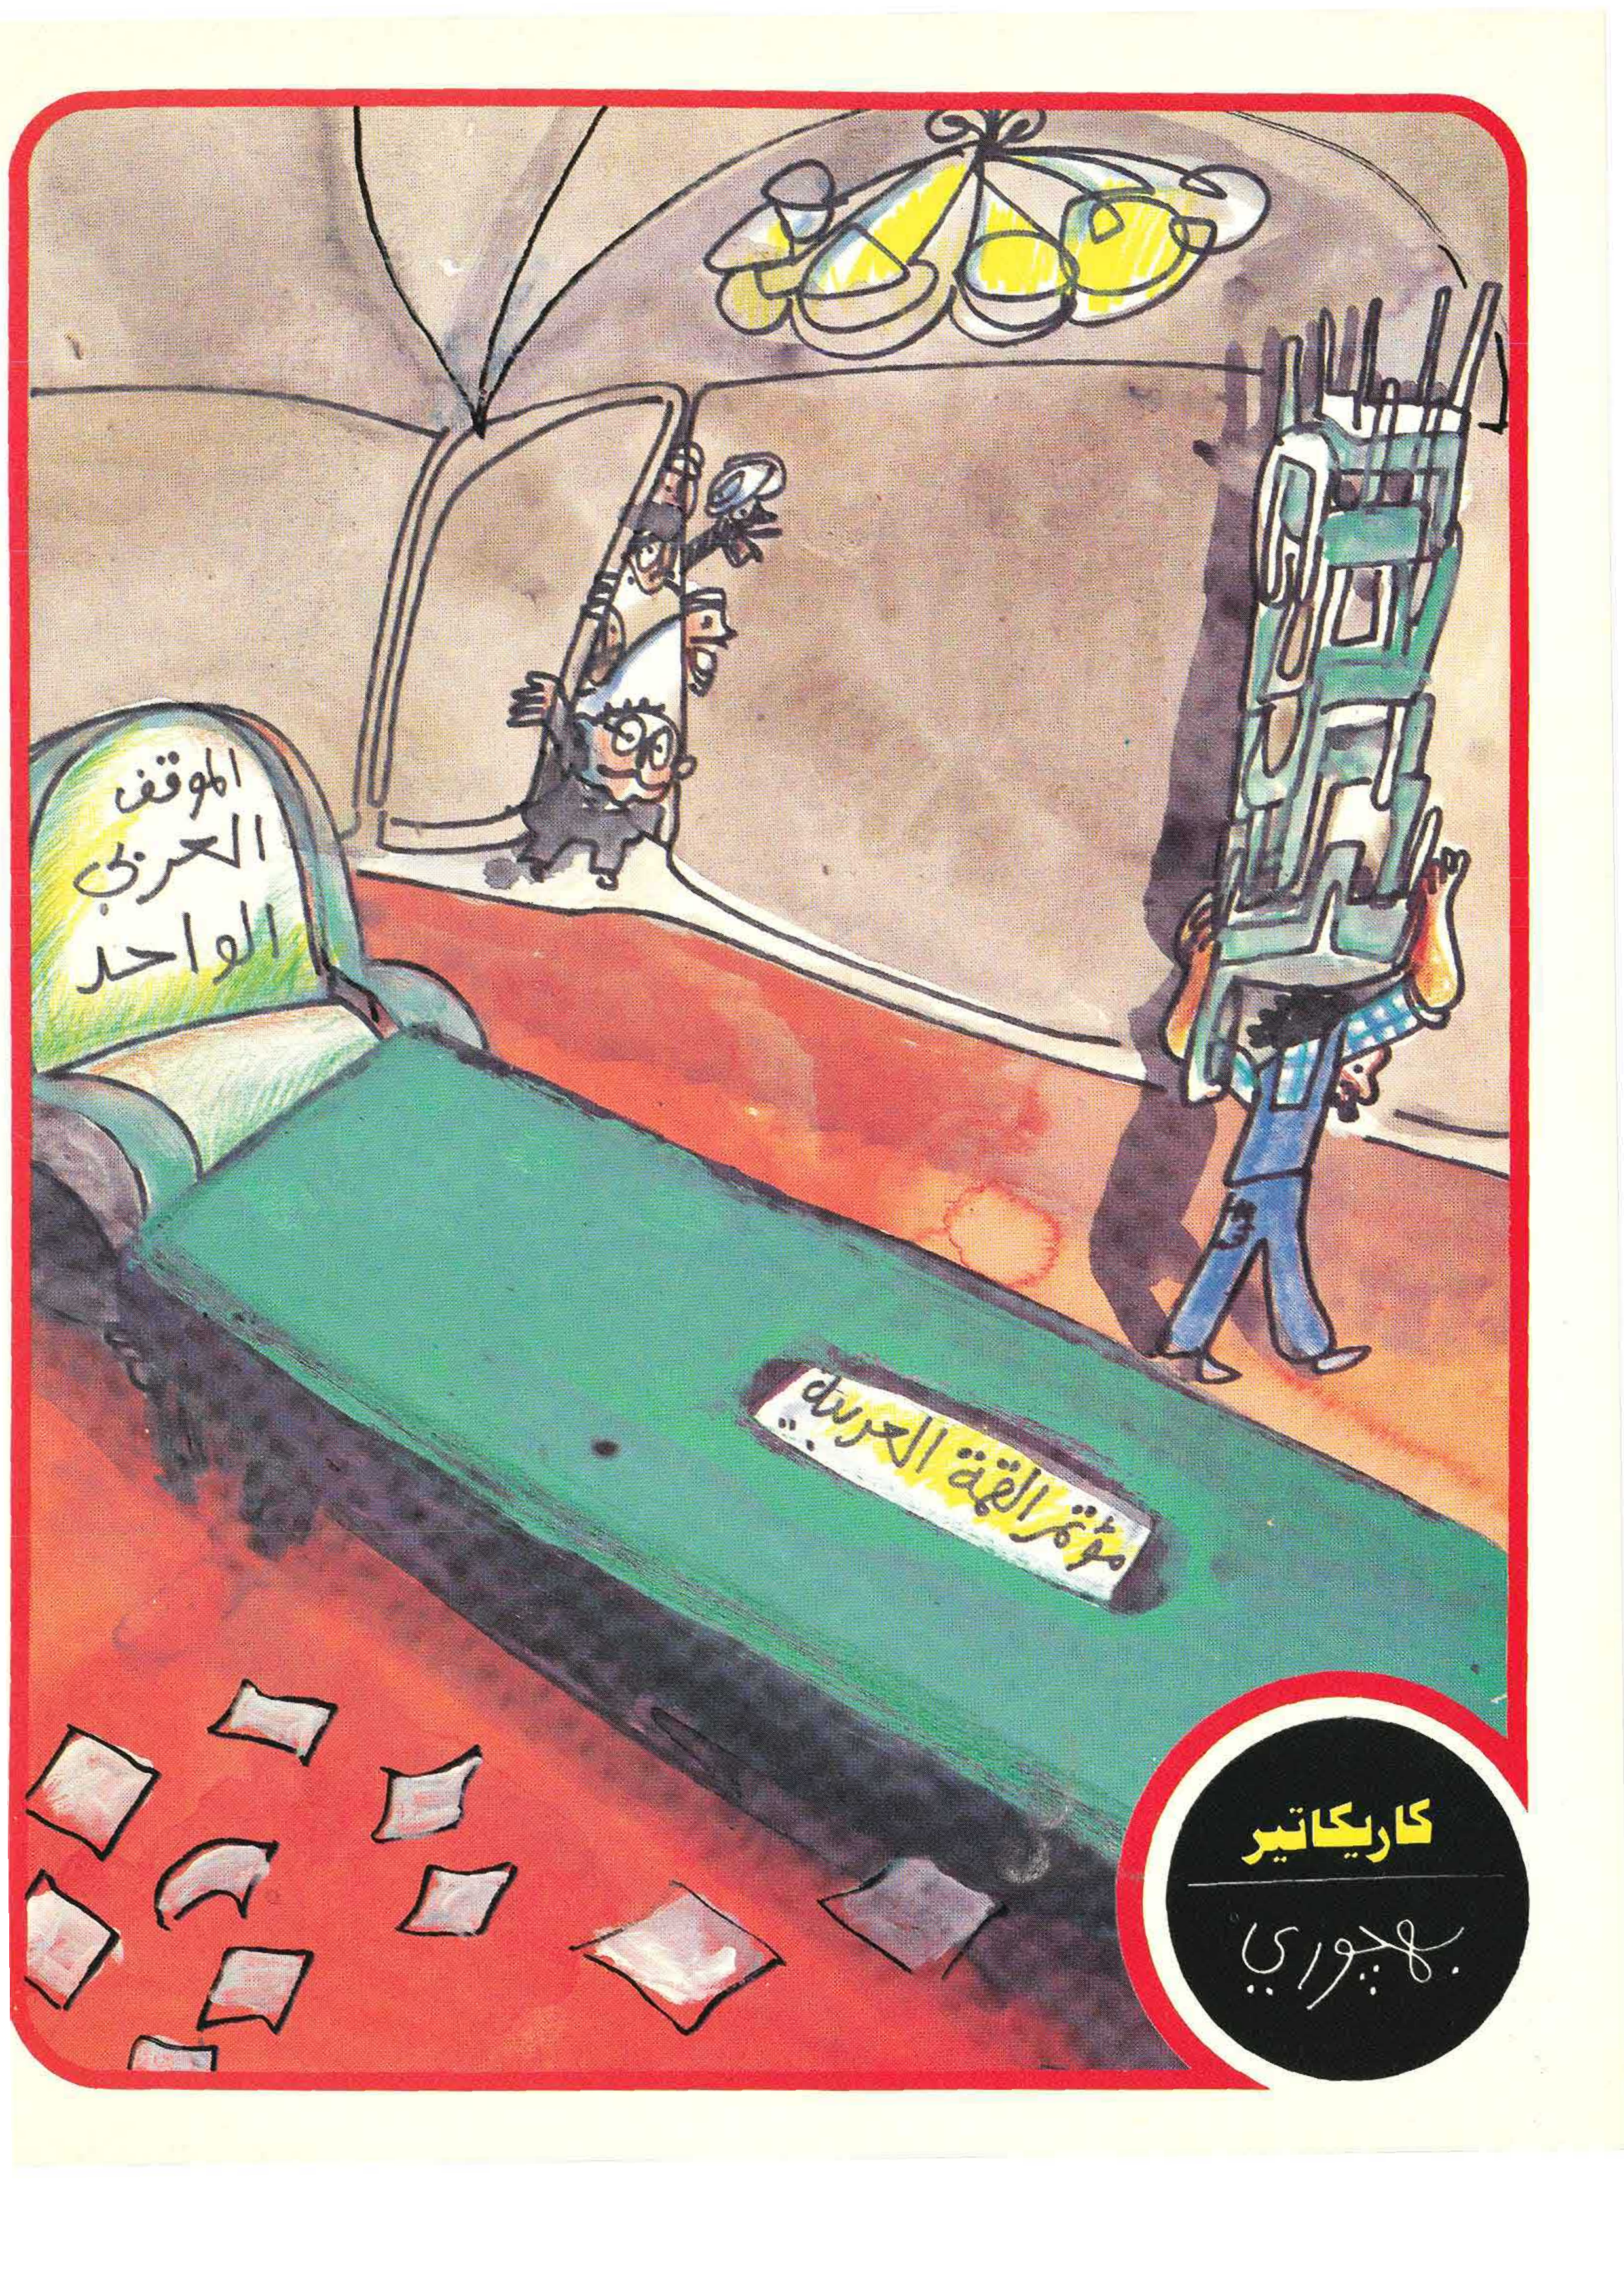 الموقف
العربي
الواحد
مؤتمر القمة العربية
كاريكاتير
بهجوري